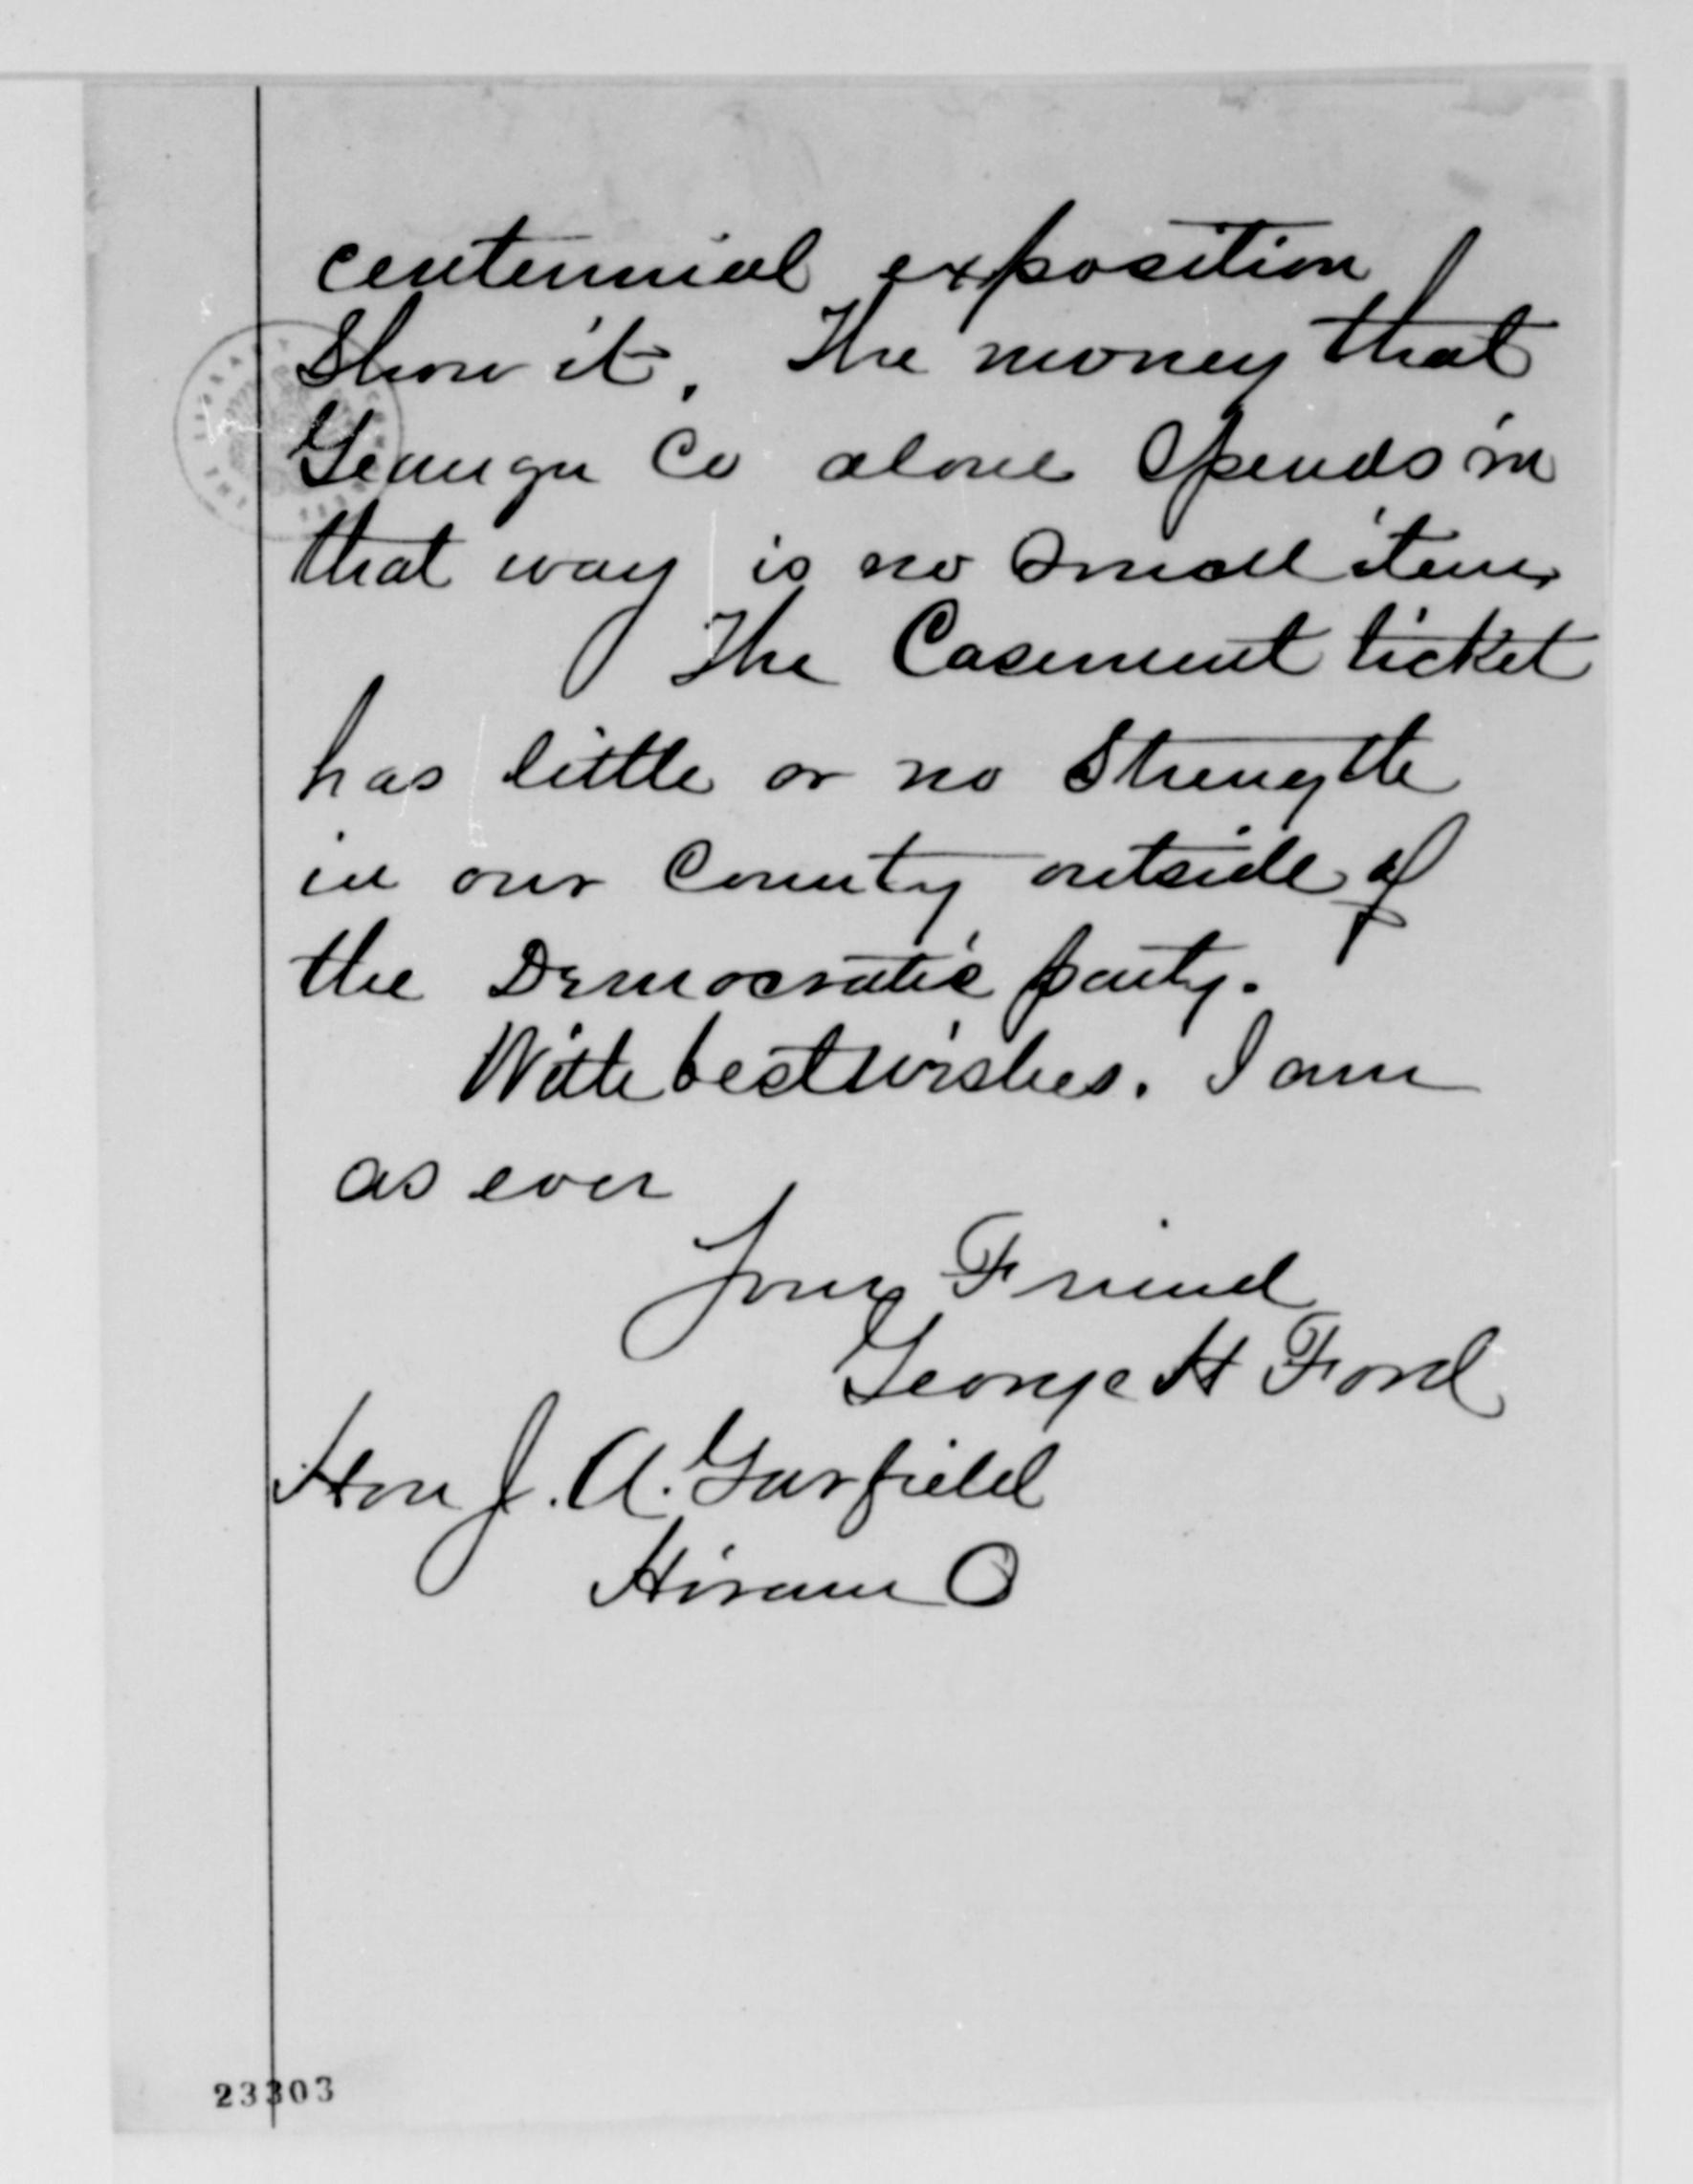 centennial exposition
Show it. The money that
Geauga Co alone Spends in
that way is no Small item.
The Casement ticket
has little or no Strength
in our County outside of
the Democratic party.
With best wishes. I am
as ever
Your Friend
George H Ford
Hon J. A. Garfield
Hiram O
23303